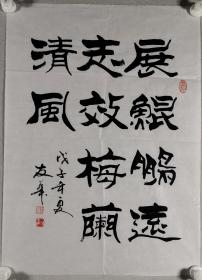 展鲲鹏遠
志效梅蘭
清風
戊子年夏
友華